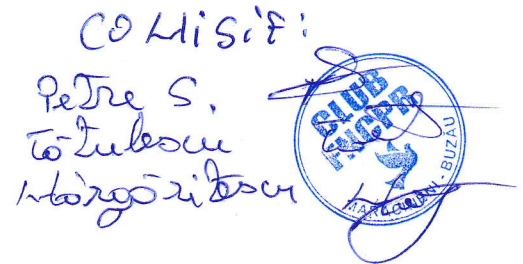 COMISIE:
Petre S.
Tătulescu
Mărgăritescu
CLUB
FNCPR
MARACINENI - BUZĂU